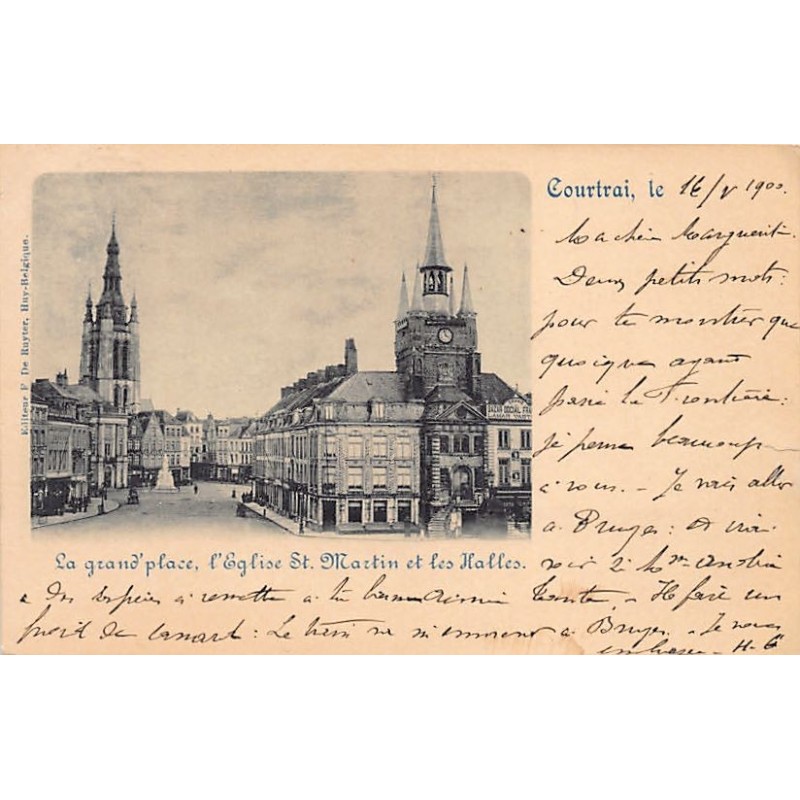 Courtrai, le 16/V 1900.
Ma chère Marguerite.
Deux petits mots:
pour te montrer que
quoique ayant
passé la Frontière:
je pense beaucoup
à vous. - Je vais aller
à Bruges: et
voir si Mme
Tante. - Il fait un
froid de canard: Le train m'emmène à Bruges. - Je vous
embrasse - H. G
La grand'place, l'Eglise St. Martin et les Halles.
Editeur F. De Ruyter, Huy-Belgique.
BAZAR SOCIAL
à remettre à ta bonne